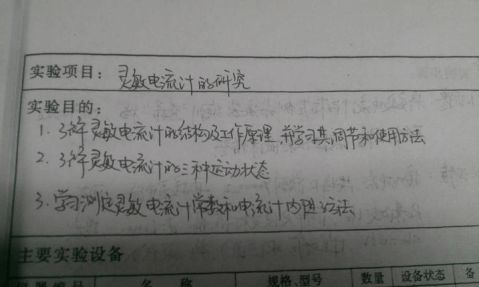 实验项目：灵敏电流计的研究
实验目的：
1. 了解灵敏电流计的结构及工作原理，并学习其调节和使用方法
2. 了解灵敏电流计的三种运动状态
3. 学习测定灵敏电流计常数和电流计内阻方法.
主要实验设备
名 称 规格、型号 数量 设备状态 备